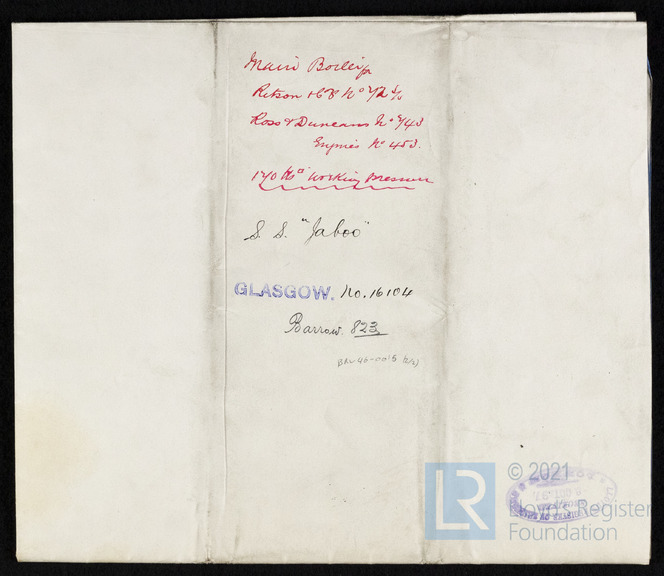 Main Boiler
Ritson & Co No
Ross & Duncans No
Engines No 453.
170 lbs □" Working Pressure
S. S. "Jaboo"
GLASGOW. No. 16104
Barrow. 823
LR
© 2021
Lloyd's Register
Foundation